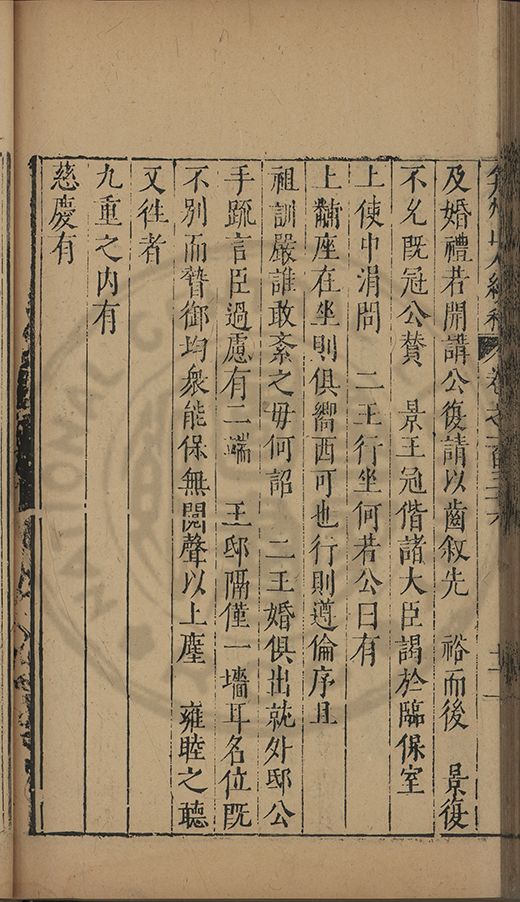 弇州山人續稿 卷之一百三十六
及婚禮若開講公復請以齒敘先 裕而後 景復
不允既冠公贊 景王冠偕諸大臣謁於臨保室
上使中涓問 二王行坐何若公曰有
上黼座在坐則俱嚮西可也行則遵倫序且
祖訓嚴誰敢紊之毋何詔 二王婚俱出就外邸公
手䟽言臣過慮有二端 王邸隔僅一墻耳名位既
不別而贄御均衆能保無鬩聲以上塵 雍睦之聽
又徃者
九重之内有
慈慶有